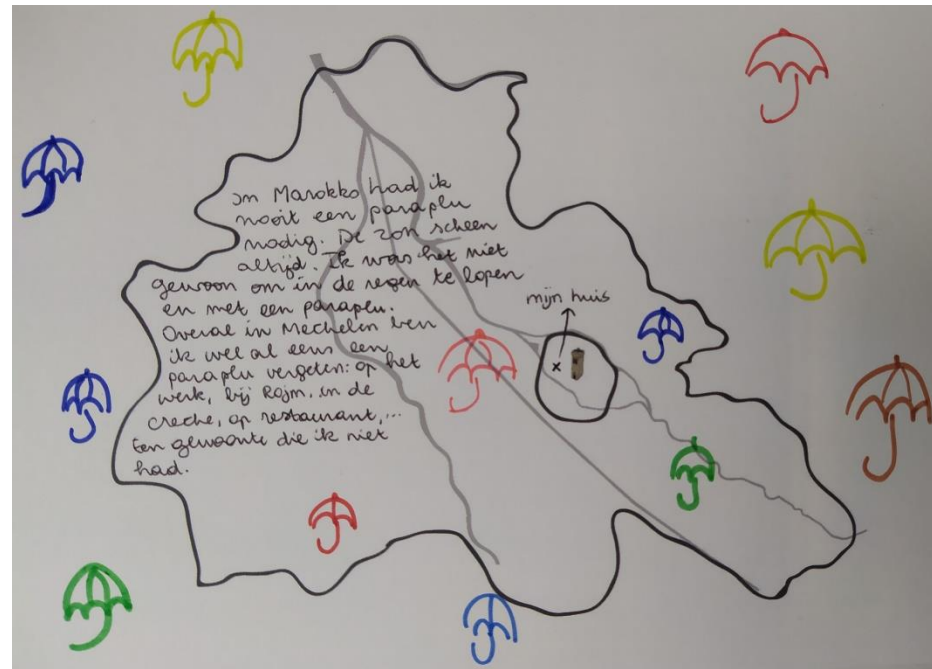 In Marokko had ik
nooit een paraplu
nodig. De zon scheen
altijd. Ik was het niet
gewoon om in de regen te lopen
en met een paraplu.
Overal in Mechelen ben
ik wel al eens een
paraplu vergeten: op het
werk, bij Rojm, in de
creche, op restaurant,...
Een gewoonte die ik niet
had.
mijn huis